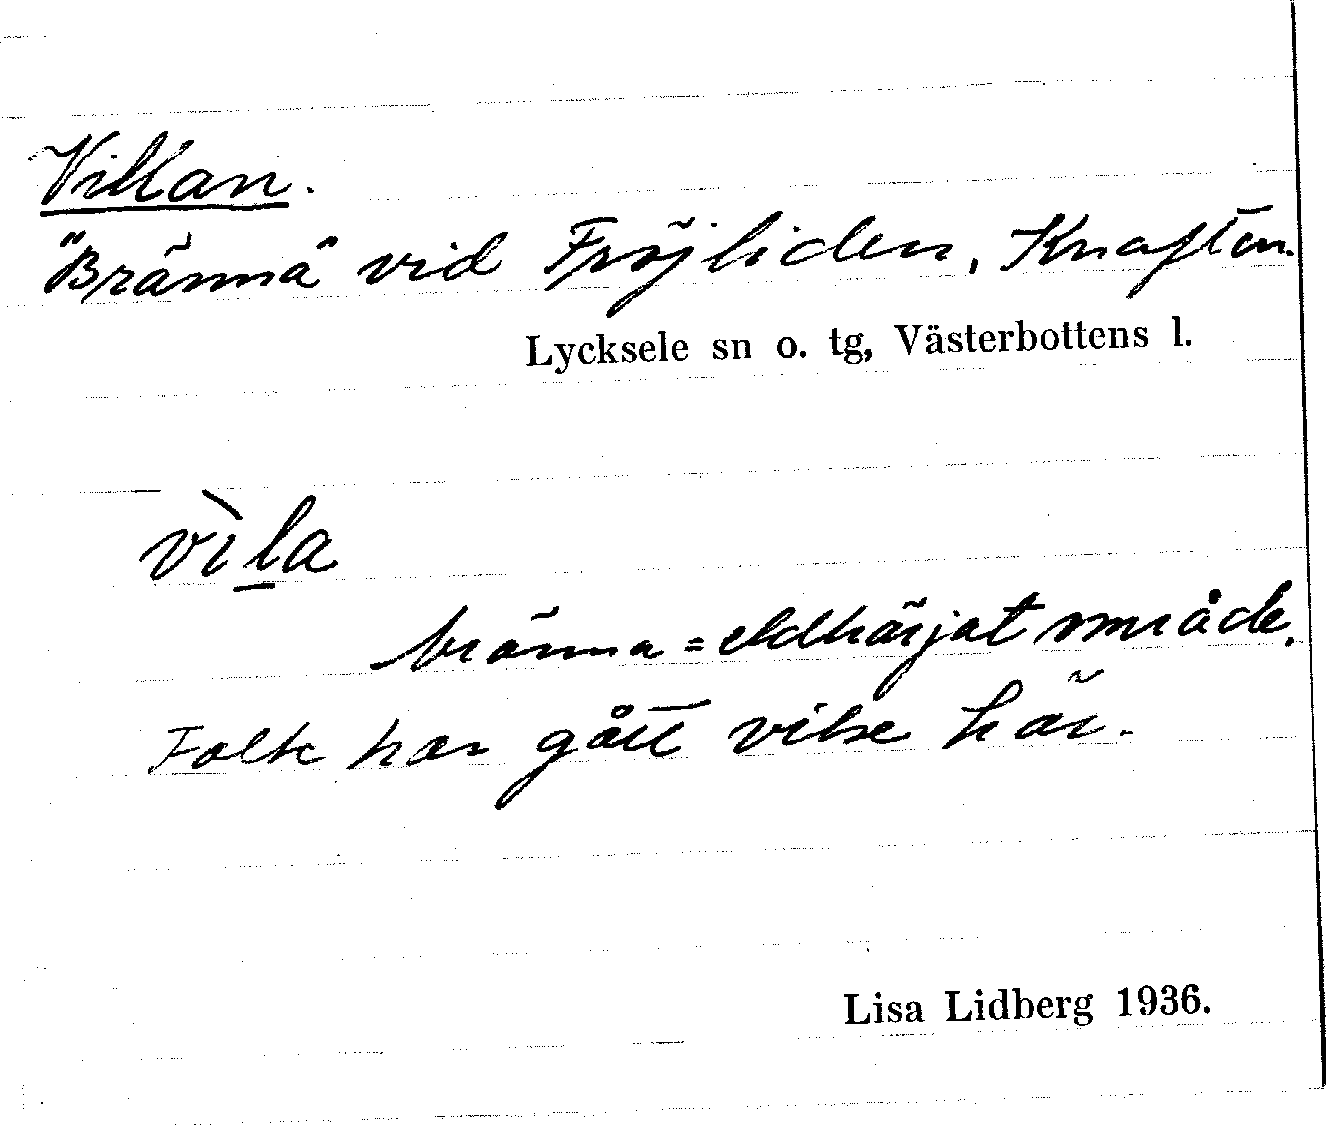 Villan.
"Bränna" vid Fröjliden, Knaften.
Lycksele sn o. tg, Västerbottens l.
vìl̲a
bränna = eldhärjat område.
Folk har gått vilse här.
Lisa Lidberg 1936.